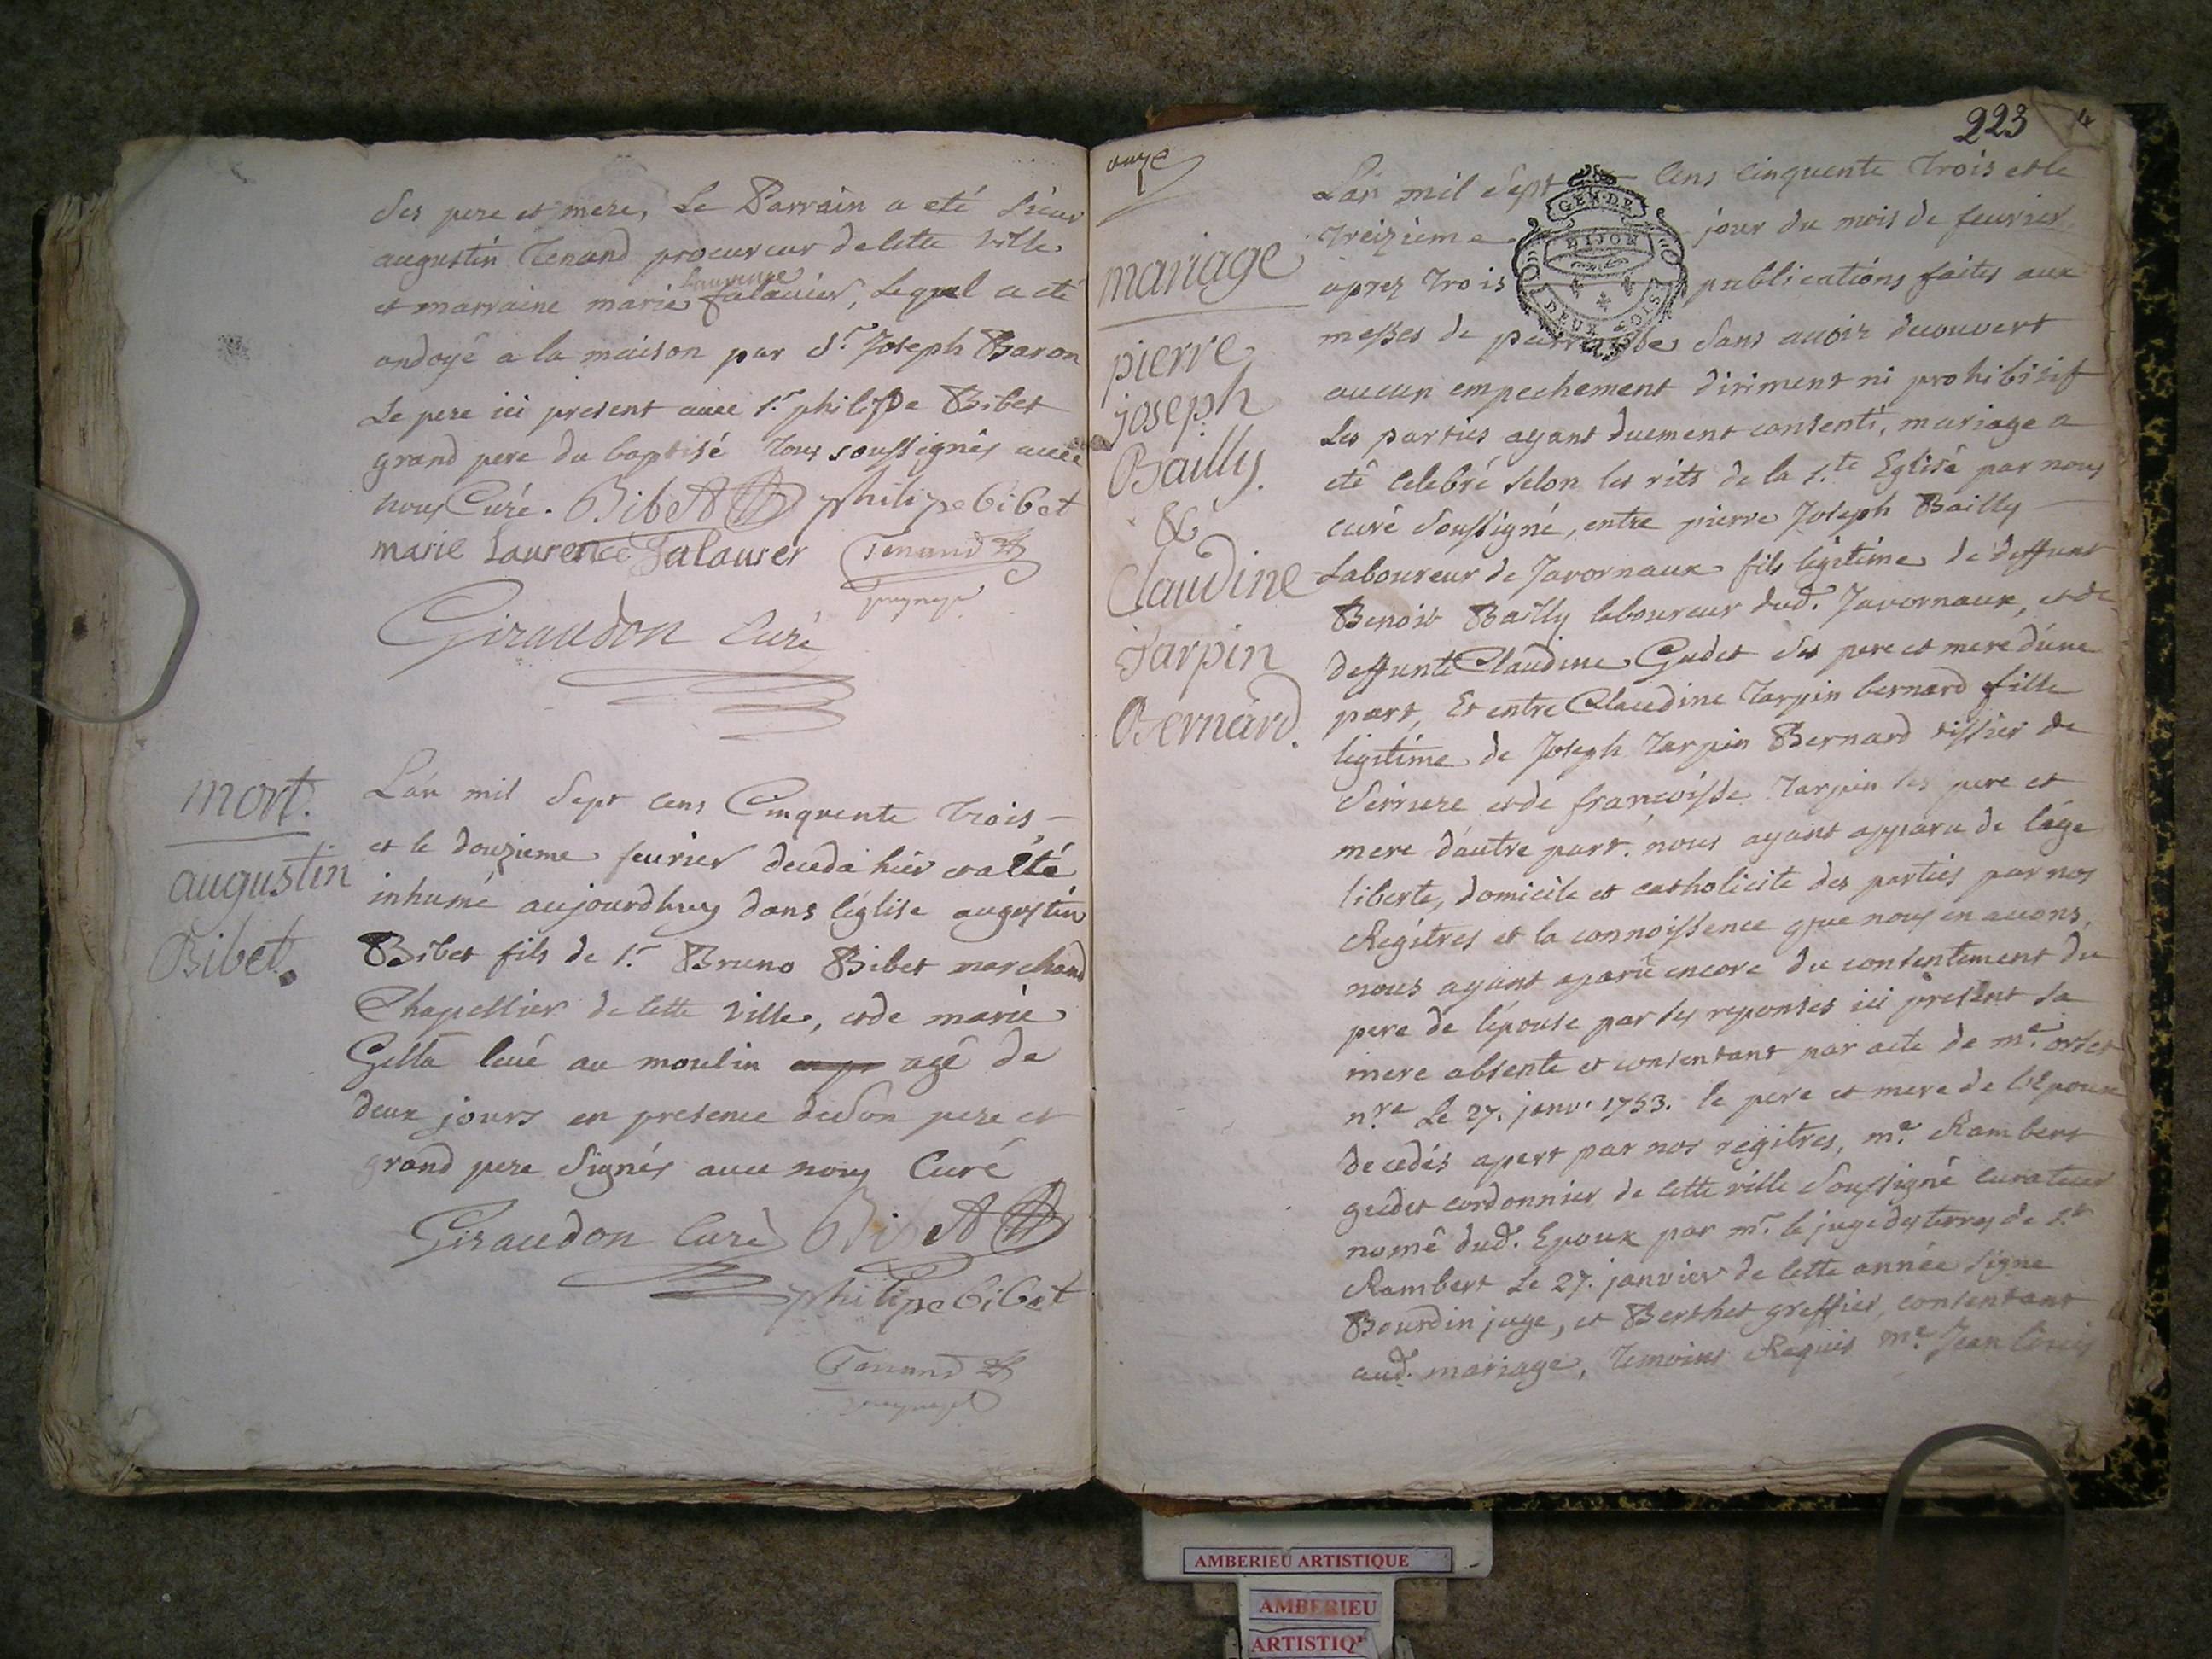 ses pere et mere, Le Parrain a eté sieur
augustin Tenand procureur de cette ville
et marraine marie Laurence falauier, Lequel a eté
ondoyé a la maison par Sr. Joseph Baron
Le pere ici present avec Sr. philippe Bibet
grand pere du baptisé tous soussignés avec
nous Curé. Bibet philipe bibet
marie Laurence Falauier Tenand
Giraudon Curé
mort.
augustin
Bibet.
L'an mil Sept cens Cinquente trois
et le douzieme feurier deceda hier et a été
inhumé aujourdhuy dans l'église augustin
Bibet fils de Sr. Bruno Bibet marchand
Chapellier de cette ville, et de marie
Gella levé au moulin agé de
deux jours en presence de son pere et
grand pere signés avec nous Curé
Giraudon Curé Bibet
philipe bibet
Tenand
223 4
onze
mariage
pierre
joseph
Bailly.
&
Claudine
Tarpin
Bernard.
L'an mil sept cens cinquente trois et le
treizieme jour du mois de feurier
aprez trois publications faites aux
messes de parroisse sans auoir decouvert
aucun empechement diriment ni prohibitif
Les parties ayant duement consenti, mariage a
eté celebré selon les rits de la Ste. Eglise par nous
curé soussigné, entre pierre Joseph Bailly
Laboureur de Javornaux fils legitime de deffunt
Benoit Bailly laboureur dud. Javornaux, et de
deffunte Claudine Gudet ses pere et mere d'une
part, Et entre Claudine Tarpin bernard fille
legitime de Joseph Tarpin Bernard tissier de
Serriere et de francoisse Tarpin ses pere et
mere d'autre part. nous ayant apparu de l'age
liberte, domicile et catholicite des parties par nos
Regitres et la connoissence que nous en auons,
nous ayant aparu encore du consentement du
pere de l'epouse par ses reponses ici present sa
mere absente et consentant par acte de me. orset
nre. Le 27. janv. 1753. le pere et mere de l'Epoux
decedés apert par nos regitres, me. Rambert
gudet cordonnier de cette ville soussigné curateur
nomé dud. Epoux par mr. le juge des terres de St.
Rambert Le 27. janvier de cette année signe
Bourdin juge, et Berthet greffier, consentant
aud. mariage, temoins Requis me. Jean Louis
GEN. DE
DIJON
DEUX SOLS
AMBERIEU ARTISTIQUE
AMBERIEU
ARTISTIQ